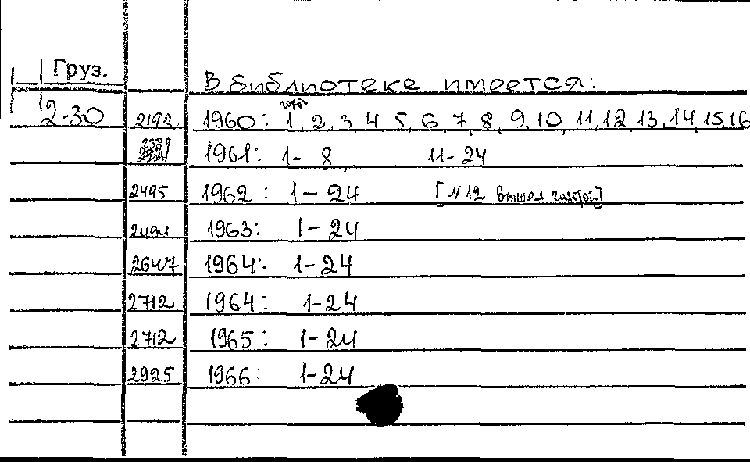 Груз.
В библиотеке имеется:
2-30 2192 1960: 1, 2, 3 4 5, 6, 7, 8, 9, 10, 11, 12 13, 14, 15, 16
1961: 1- 8, 11-24
2495 1962: 1-24 [N12 газетой]
1963: 1-24
2647 1964: 1-24
2712 1964: 1-24
2712 1965: 1-24
2925 1966: 1-24